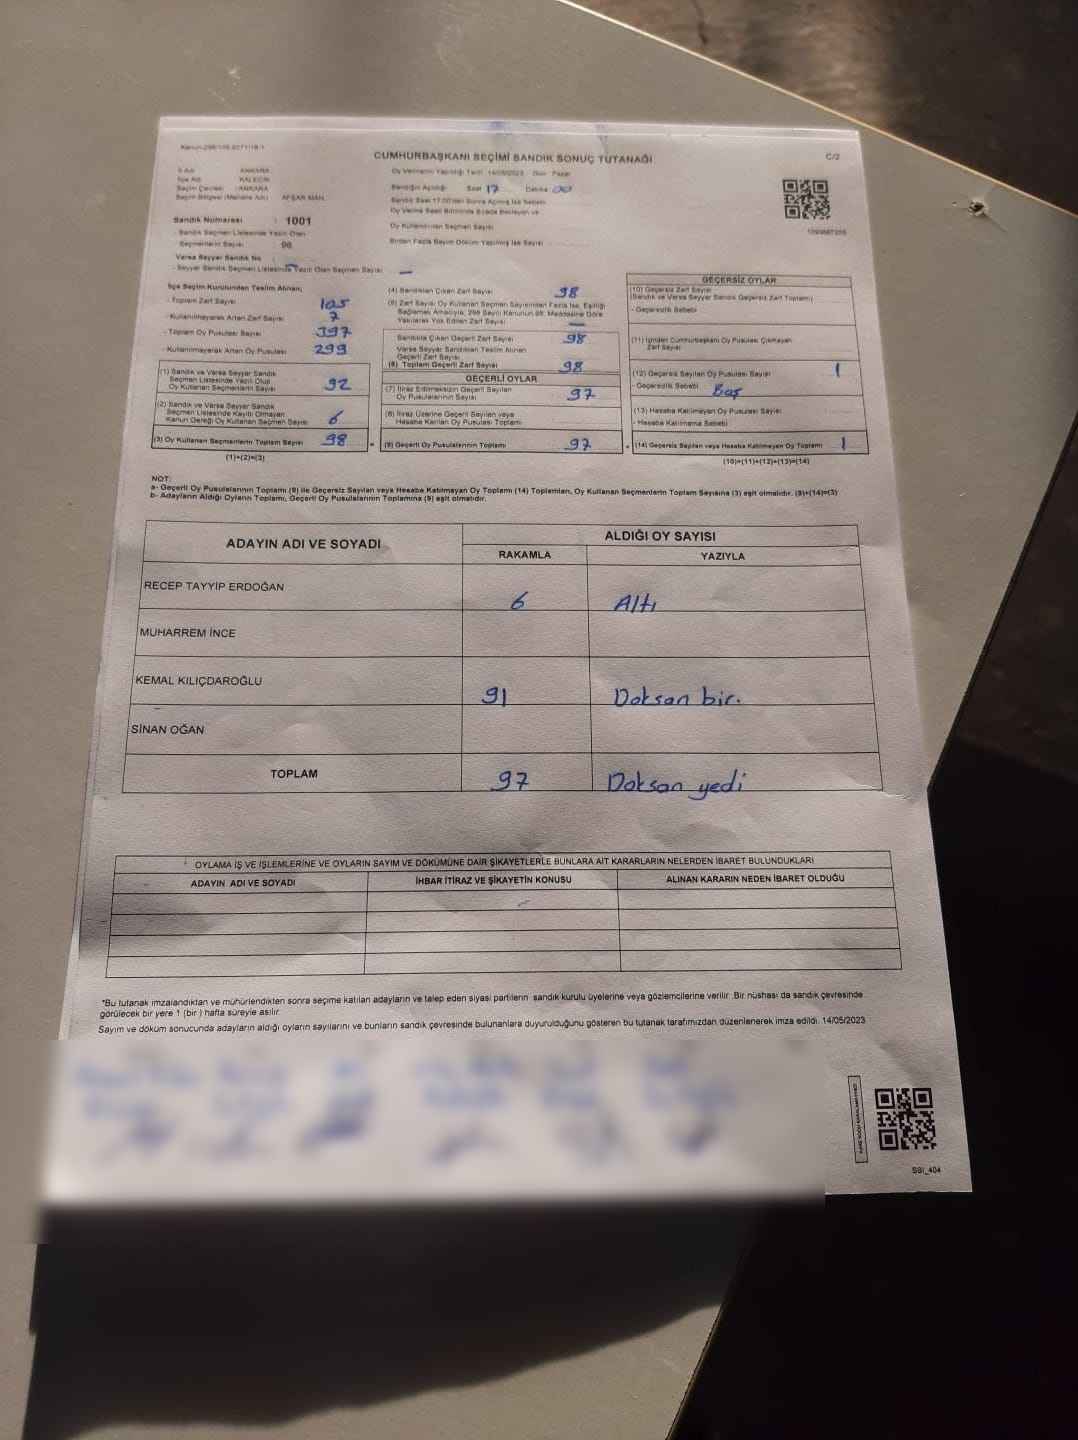 CUMHURBAŞKANI SEÇİMİ SANDIK SONUÇ TUTANAĞI
C/2
İl Adı : ANKARA
İlçe Adı : KALECİK
Seçim Çevresi : ANKARA
Seçim Bölgesi (Mahalle Adı) : AFŞAR MAH.
Oy Vermenin Yapıldığı Tarih 14/05/2023 Gün Pazar
Sandığın Açıldığı Saat 17 Dakika 00
Sandık Saat 17.00'den Sonra Açılmış İse Sebebi
Oy Verme Saati Bitiminde Sırada Bekleyen ve
Oy Kullandırılan Seçmen Sayısı
Birden Fazla Sayım Döküm Yapılmış İse Sayısı
Sandık Numarası : 1001
- Sandık Seçmen Listesinde Yazılı Olan
Seçmenlerin Sayısı : 96
Varsa Seyyar Sandık No
- Seyyar Sandık Seçmen Listesinde Yazılı Olan Seçmen Sayısı —
İlçe Seçim Kurulundan Teslim Alınan;
- Toplam Zarf Sayısı 105
- Kullanılmayarak Artan Zarf Sayısı 7
- Toplam Oy Pusulası Sayısı 397
- Kullanılmayarak Artan Oy Pusulası 299
(1) Sandık ve Varsa Seyyar Sandık
Seçmen Listesinde Yazılı Olup
Oy Kullanan Seçmenlerin Sayısı 92
(2) Sandık ve Varsa Seyyar Sandık
Seçmen Listesinde Kayıtlı Olmayan
Kanun Gereği Oy Kullanan Seçmen Sayısı 6
(3) Oy Kullanan Seçmenlerin Toplam Sayısı 98
(1)+(2)=(3)
(4) Sandıktan Çıkan Zarf Sayısı 98
(5) Zarf Sayısı Oy Kullanan Seçmen Sayısından Fazla İse, Eşitliği
Sağlamak Amacıyla, 298 Sayılı Kanunun 98. Maddesine Göre
Yakılarak Yok Edilen Zarf Sayısı —
Sandıkta Çıkan Geçerli Zarf Sayısı 98
Varsa Seyyar Sandıktan Teslim Alınan
Geçerli Zarf Sayısı
(6) Toplam Geçerli Zarf Sayısı 98
GEÇERLİ OYLAR
(7) İtiraz Edilmeksizin Geçerli Sayılan
Oy Pusulalarının Sayısı 97
(8) İtiraz Üzerine Geçerli Sayılan veya
Hesaba Katılan Oy Pusulası Sayısı
(9) Geçerli Oy Pusulalarının Toplamı 97
GEÇERSİZ OYLAR
(10) Geçersiz Zarf Sayısı
(Sandık ve Varsa Seyyar Sandık Geçersiz Zarf Toplamı)
- Geçersizlik Sebebi
(11) İçinden Cumhurbaşkanı Oy Pusulası Çıkmayan
Zarf Sayısı
(12) Geçersiz Sayılan Oy Pusulası Sayısı 1
- Geçersizlik Sebebi Boş
(13) Hesaba Katılmayan Oy Pusulası Sayısı
- Hesaba Katılmama Sebebi
(14) Geçersiz Sayılan veya Hesaba Katılmayan Oy Toplamı 1
(10)+(11)+(12)+(13)=(14)
NOT:
a- Geçerli Oy Pusulalarının Toplamı (9) ile Geçersiz Sayılan veya Hesaba Katılmayan Oy Toplamı (14) Toplamları, Oy Kullanan Seçmenlerin Toplam Sayısına (3) eşit olmalıdır. (9)+(14)=(3)
b- Adayların Aldığı Oyların Toplamı, Geçerli Oy Pusulalarının Toplamına (9) eşit olmalıdır.
ADAYIN ADI VE SOYADI
ALDIĞI OY SAYISI
RAKAMLA YAZIYLA
RECEP TAYYİP ERDOĞAN 6 Altı
MUHARREM İNCE
KEMAL KILIÇDAROĞLU 91 Doksan bir.
SİNAN OĞAN
TOPLAM 97 Doksan yedi
OYLAMA İŞ VE İŞLEMLERİNE VE OYLARIN SAYIM VE DÖKÜMÜNE DAİR ŞİKAYETLERLE BUNLARA AİT KARARLARIN NELERDEN İBARET BULUNDUKLARI
ADAYIN ADI VE SOYADI İHBAR İTİRAZ VE ŞİKAYETİN KONUSU ALINAN KARARIN NEDEN İBARET OLDUĞU
*Bu tutanak imzalandıktan ve mühürlendikten sonra seçime katılan adayların ve talep eden siyasi partilerin sandık kurulu üyelerine veya gözlemcilerine verilir. Bir nüshası da sandık çevresinde
görülecek bir yere 1 (bir) hafta süreyle asılır.
Sayım ve döküm sonucunda adayların aldığı oyların sayılarını ve bunların sandık çevresinde bulunanlara duyurulduğunu gösteren bu tutanak tarafımızdan düzenlenerek imza edildi. 14/05/2023
SSİ_404